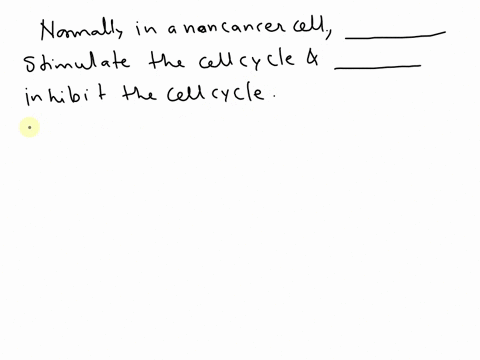 Normally in a noncancer cell, ________
Stimulate the cell cycle & ________
inhibit the cell cycle.